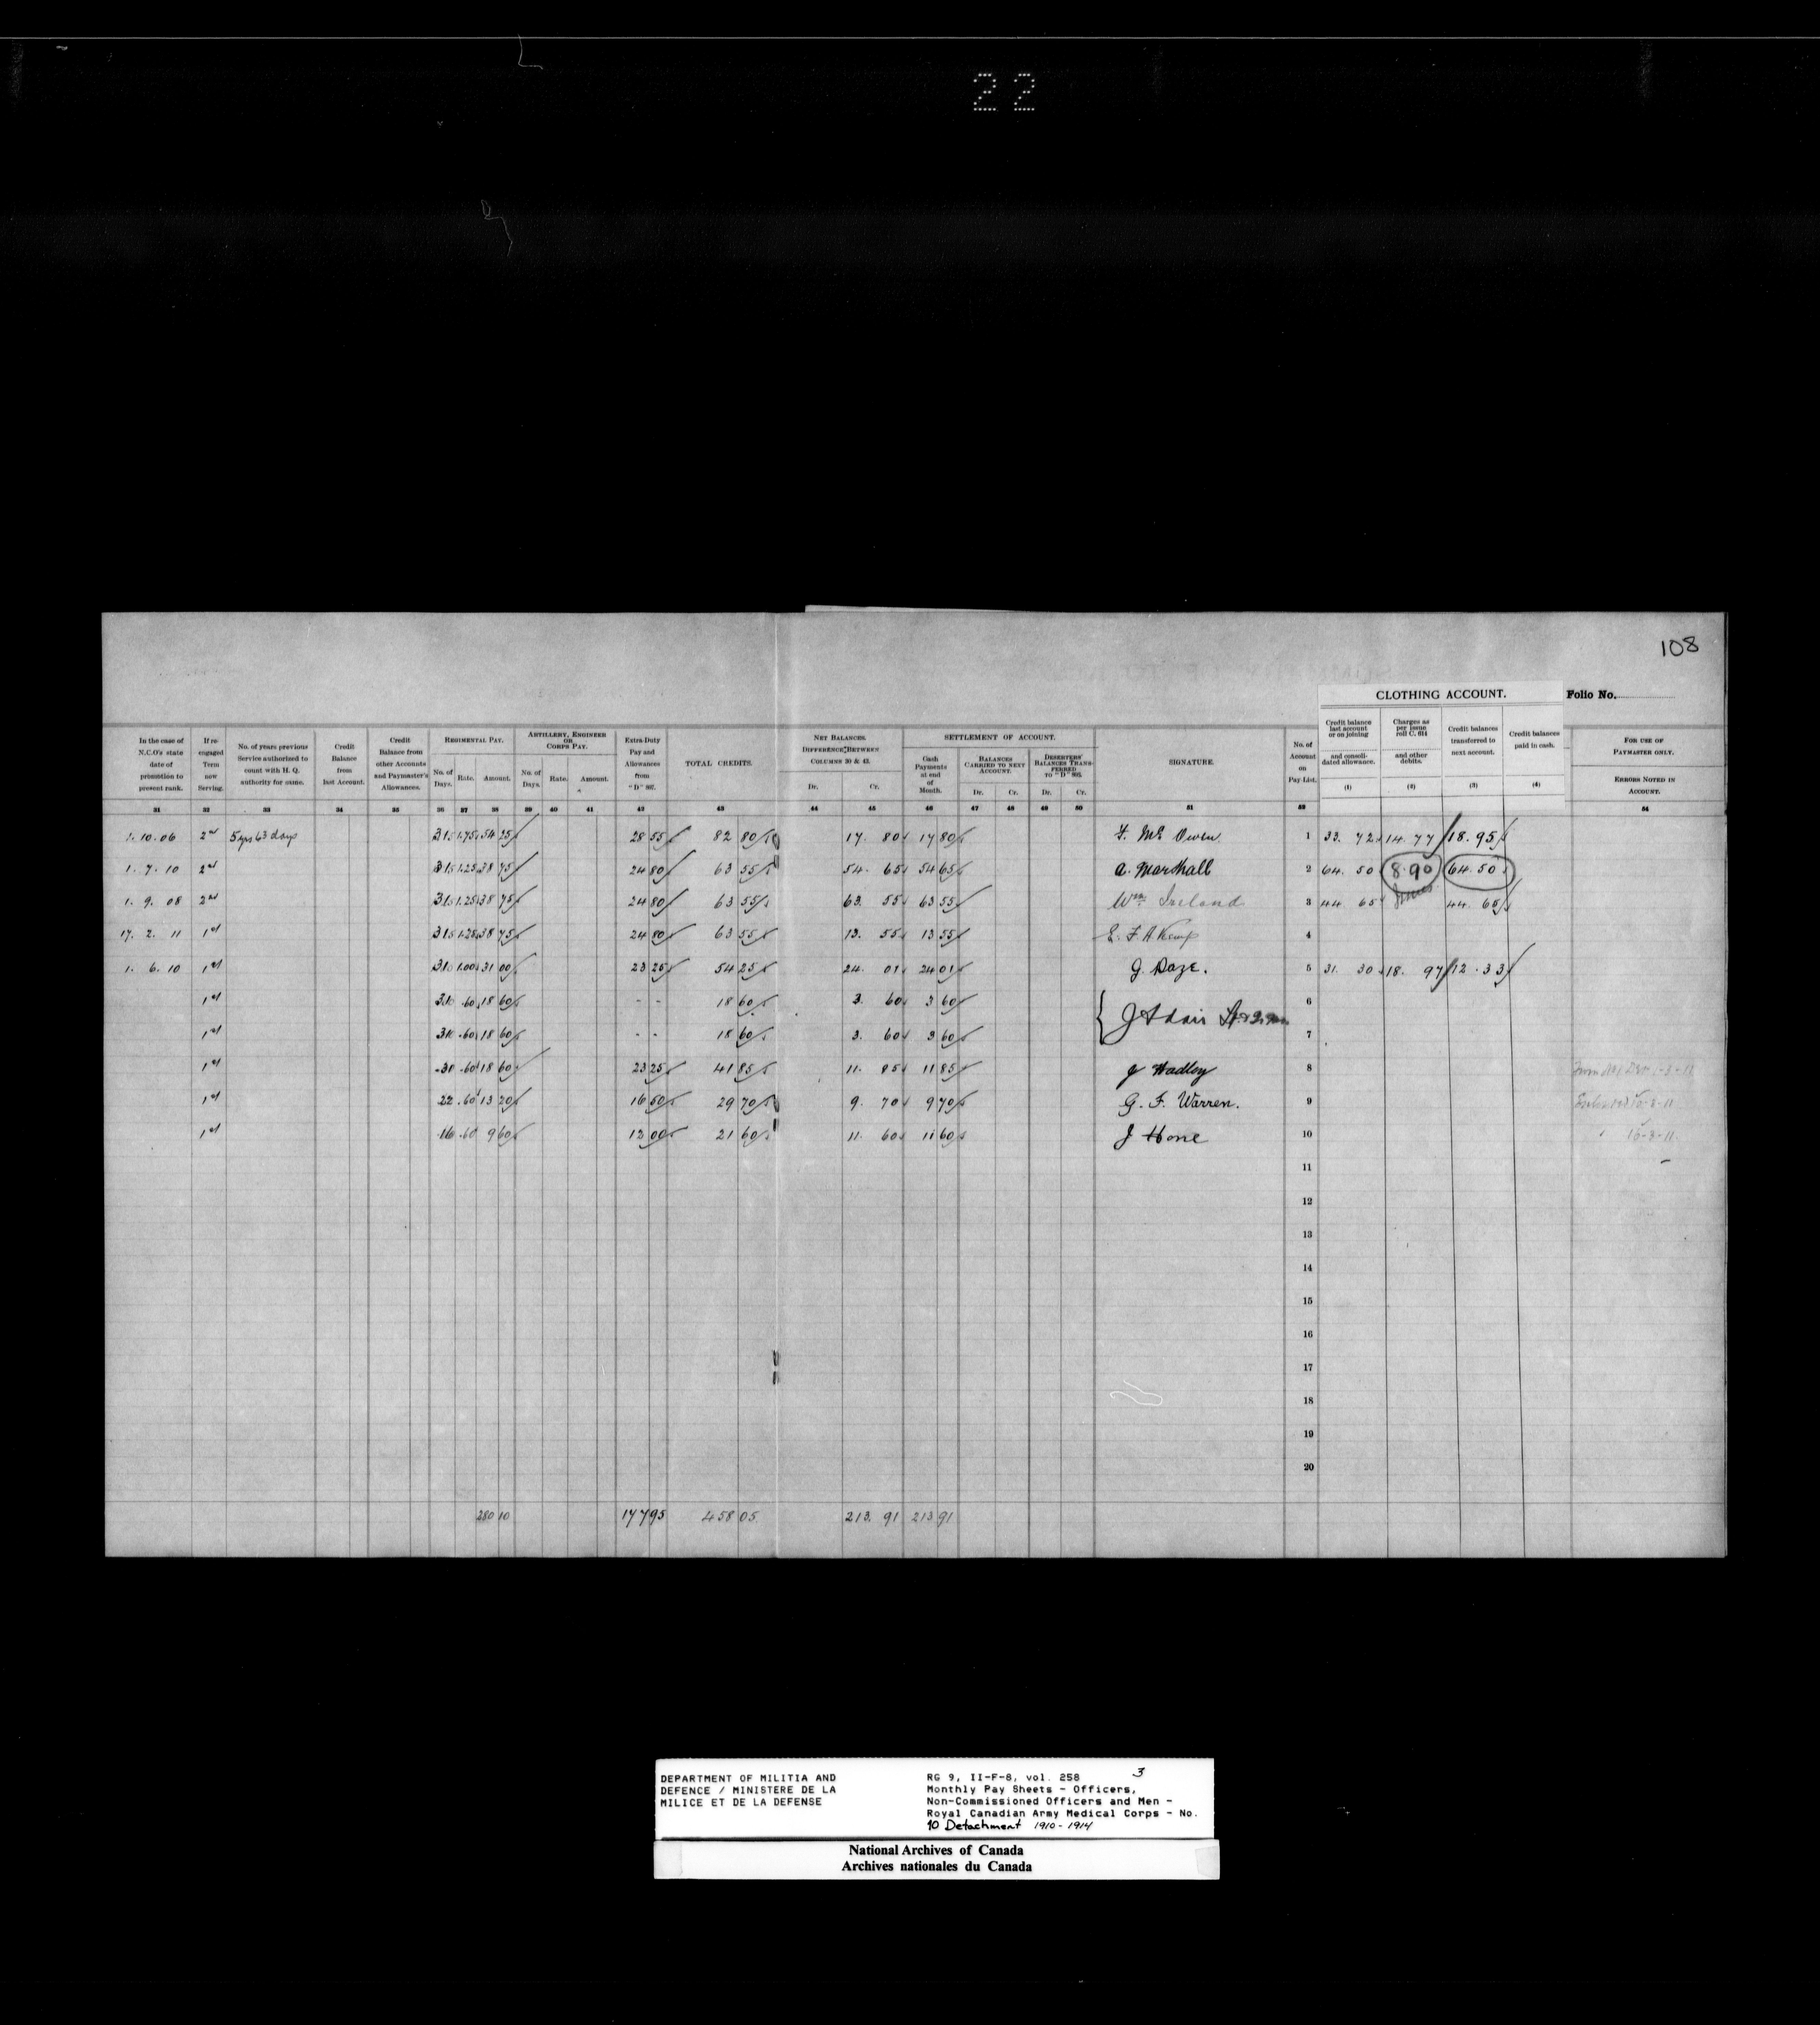 22
108
CLOTHING ACCOUNT.
Folio No.
In the case of N.C.O's state date of promotion to present rank.
If re-engaged Term now Serving.
No. of years previous Service authorized to count with H. Q. authority for same.
Credit Balance from last Account.
Credit Balance from other Accounts and Paymaster's Allowances.
REGIMENTAL PAY.
No. of Days. Rate. Amount.
ARTILLERY, ENGINEER OR CORPS PAY.
No. of Days. Rate. Amount.
Extra-Duty Pay and Allowances from "D" 807.
TOTAL CREDITS.
NET BALANCES.
DIFFERENCE BETWEEN COLUMNS 30 & 43.
Dr. Cr.
SETTLEMENT OF ACCOUNT.
Cash Payments at end of Month.
BALANCES CARRIED TO NEXT ACCOUNT.
Dr. Cr.
DESERTERS' BALANCES TRANSFERRED TO "D" 805.
Dr. Cr.
SIGNATURE.
No. of Account on Pay List.
Credit balance last account or on joining and consolidated allowance.
(1)
Charges as per issue roll C. 614 and other debits.
(2)
Credit balances transferred to next account.
(3)
Credit balances paid in cash.
(4)
FOR USE OF PAYMASTER ONLY.
ERRORS NOTED IN ACCOUNT.
31 32 33 34 35 36 37 38 39 40 41 42 43 44 45 46 47 48 49 50 51 52 54
1. 10. 06 2nd 5 yrs 63 days 31 1.75 54 25 28 55 82 80 17. 80 17 80 Owen 1 33. 72 14. 77 18. 95
1. 7. 10 2nd 31 1.25 38 75 24 80 63 55 54. 65 54 65 A. Marshall 2 64. 50 8.90 64. 50
1. 9. 08 2nd 31 1.25 38 75 24 80 63 55 63. 55 63 55 Wm Ireland 3 44 65 44. 65
17. 2. 11 1st 31 1.25 38 75 24 80 63 55 13. 55 13 55 E. F. A. Kemp 4
1. 6. 10 1st 31 1.00 31 00 23 25 54 25 24. 01 24 01 J. Daze. 5 31. 30 18. 97 12. 33
1st 31 .60 18 60 - - 18 60 3. 60 3 60 6
J Adair
1st 31 .60 18 60 - - 18 60 3. 60 3 60 7
1st 31 .60 18 60 23 25 41 85 11. 85 11 85 J Hadley 8
1st 22 .60 13 20 16 50 29 70 9. 70 9 70 G. F. Warren. 9
1st 16 .60 9 60 12 00 21 60 11. 60 11 60 J Hone 10
11
12
13
14
15
16
17
18
19
20
280 10 177 95 458 05 213. 91 213 91
DEPARTMENT OF MILITIA AND
DEFENCE / MINISTERE DE LA
MILICE ET DE LA DEFENSE
RG 9, II-F-8, vol. 258 3
Monthly Pay Sheets - Officers,
Non-Commissioned Officers and Men -
Royal Canadian Army Medical Corps - No.
10 Detachment 1910-1914
National Archives of Canada
Archives nationales du Canada